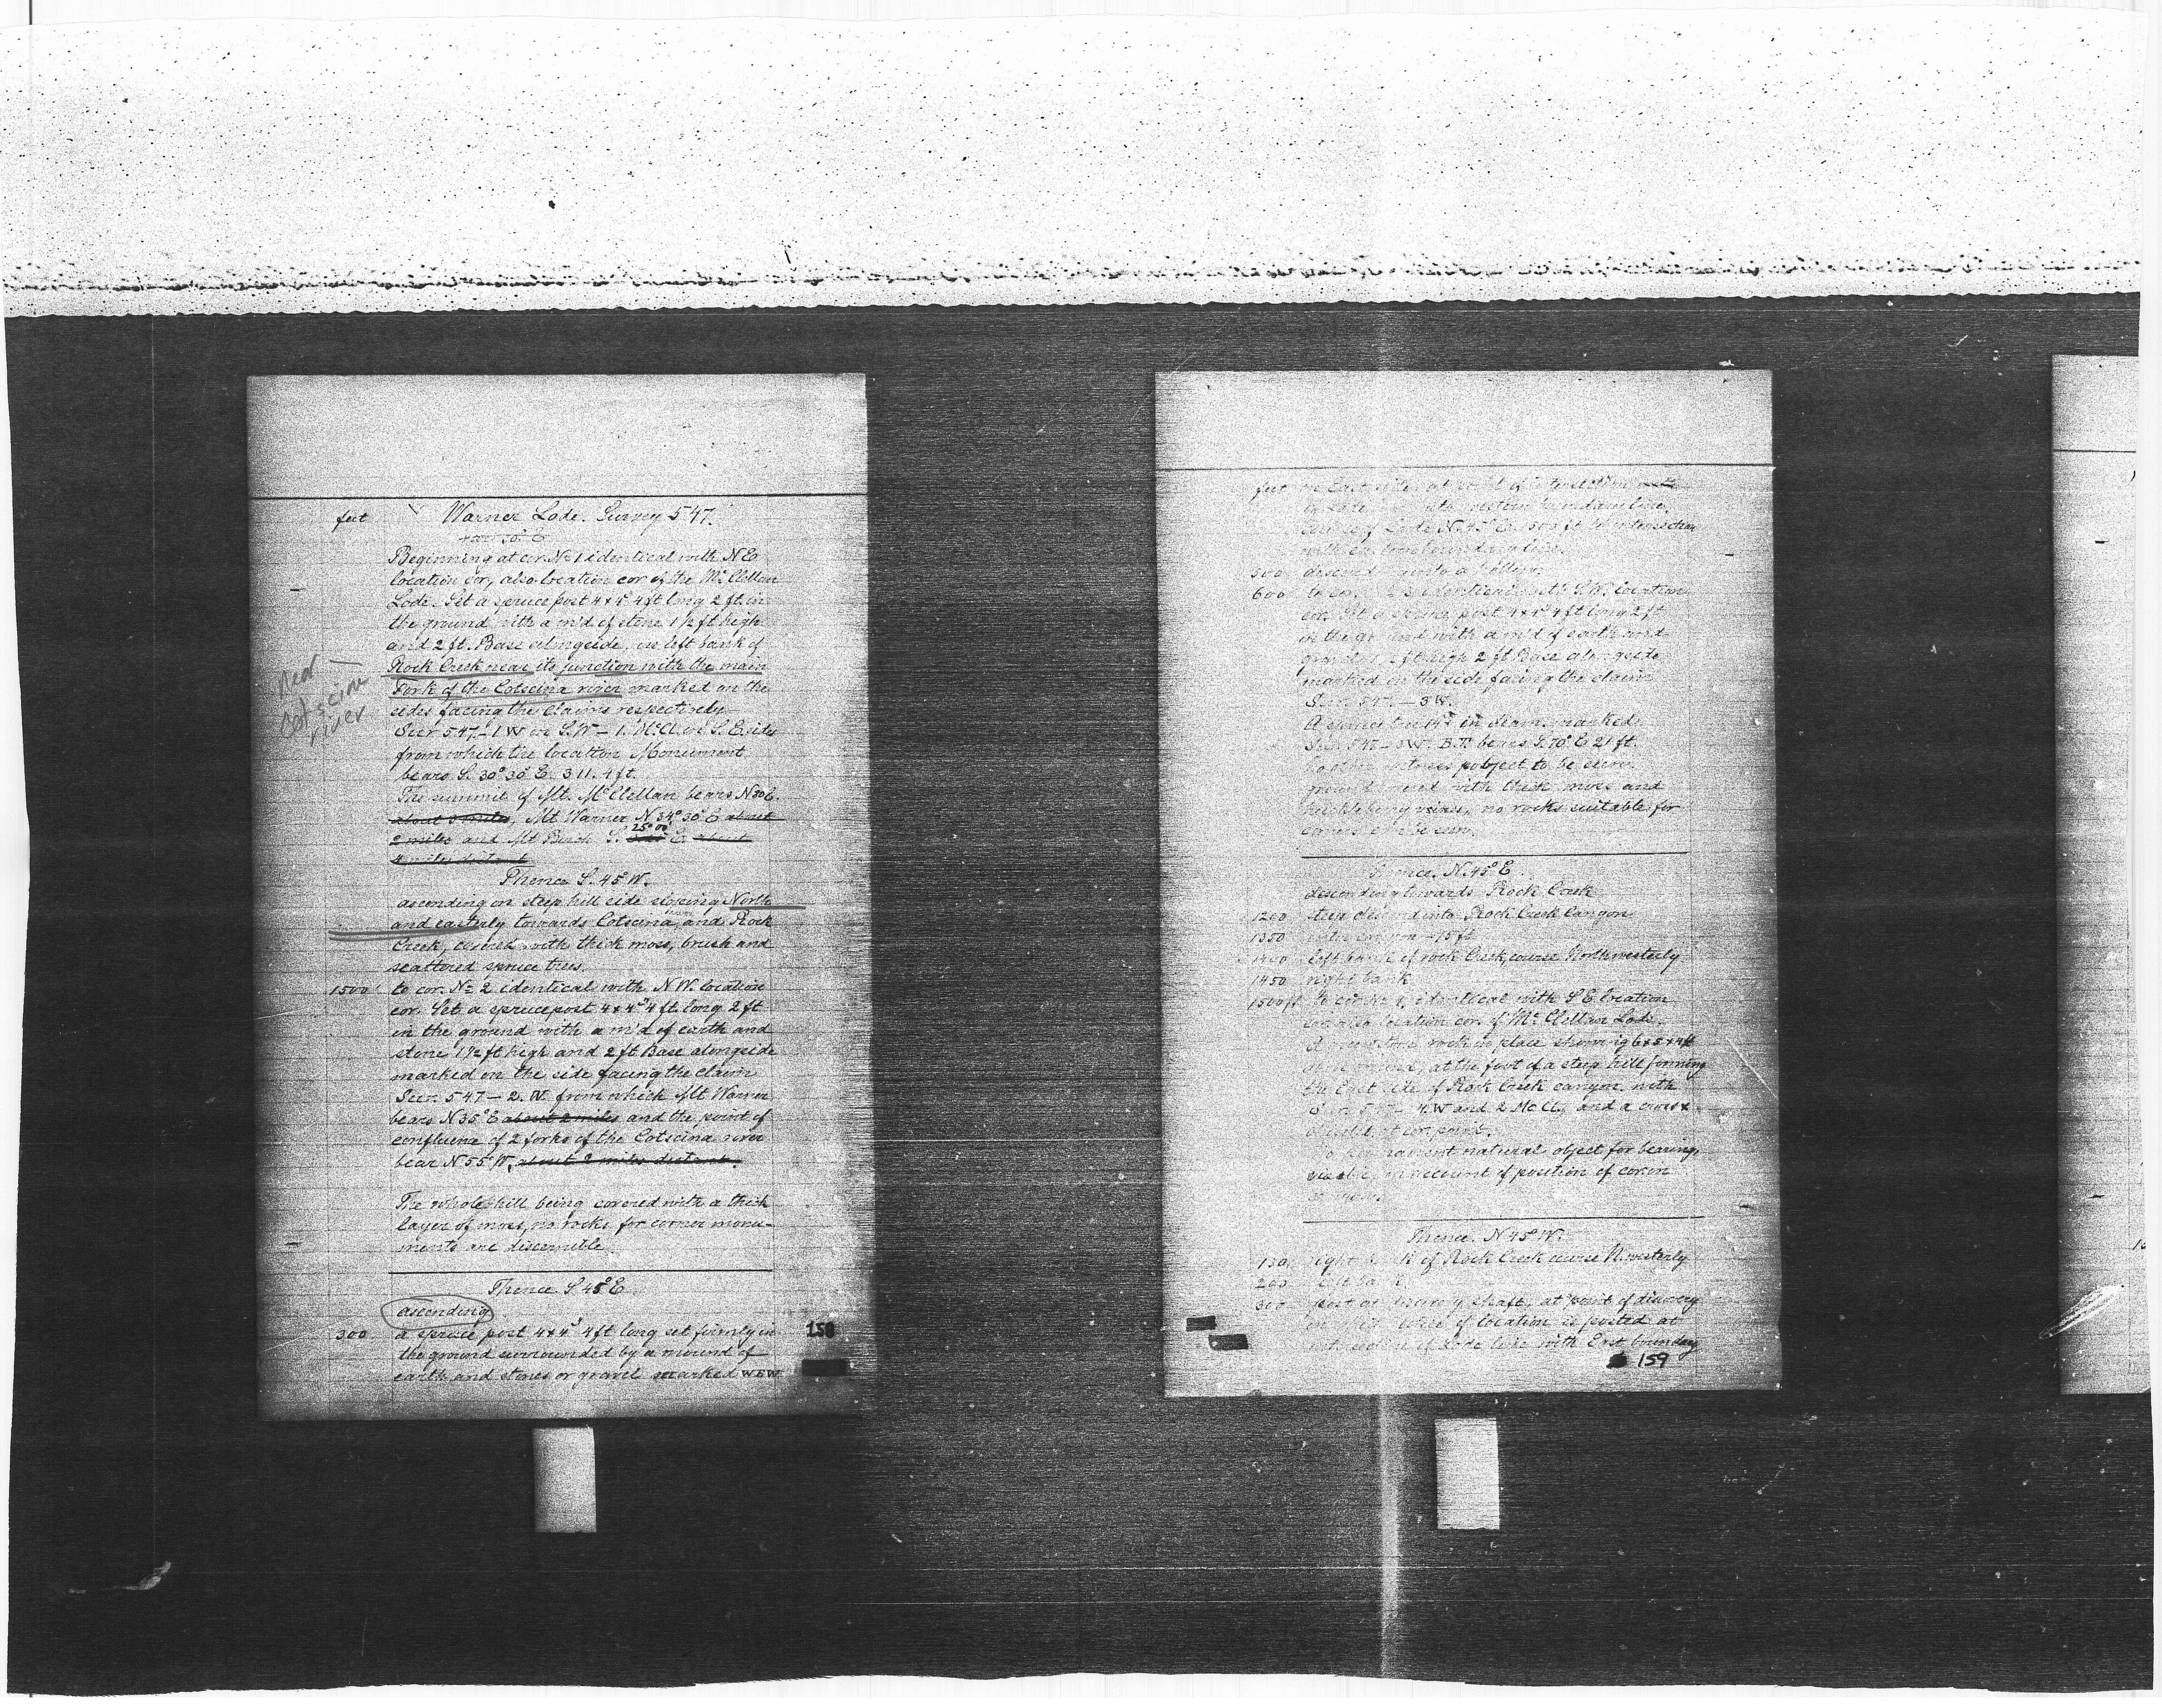 feet Warner Lode. Survey 547.
Beginning at cor. No 1 identical with N E
location cor, also location cor of the Mc Clellan
Lode. Set a spruce post 4x4" 4 ft long 2 ft in
the ground with a m'd of stone 1 1/2 ft high
and 2 ft. Base alongside, on left bank of
Rock Creek near its junction with the main
Fork of the Cotscina river marked on the
sides facing the claims respectively
Sur 547 - 1 W on S.W - 1. Mc Cl. on S. E. sides
from which the location Monument
bears S. 30° 30' E. 311.4 ft.
The summit of Mt. McClellan bears N 30 E.
about 3 miles, Mt Warner N 34° 30' E about
2 miles and Mt Birch S. 25° 00' E. about
4 miles distant
near
Cotscina
river
Thence S. 45° W.
ascending on steep hill side sloping North
and easterly towards Cotscina river and Rock
Creek, covered with thick moss, brush and
scattered spruce trees.
1500 to cor. No 2 identical with N.W. location
cor. Set a spruce post 4x4" 4 ft long 2 ft
in the ground with a m'd of earth and
stone 1 1/2 ft high and 2 ft Base alongside
marked on the side facing the claim
Sur. 547 - 2. W. from which Mt Warner
bears N 35° E about 2 miles and the point of
confluence of 2 forks of the Cotscina river
bear N 55° W, about 2 miles distant.
The whole hill being covered with a thick
layer of moss, no rocks for corner monu-
ments are discernible.
Thence S. 45° E.
ascending
300 a spruce post 4x4" 4 ft long set firmly in
the ground surrounded by a mound of
earth and stones or gravel marked W.E.W.
158
feet on East side, at point of intersection
boundary line.
course of Lode N. 45° E. 1500 ft to intersection
with eastern boundary line.
500 descend into a
600 to cor. identical with S.W. location
cor. Set a spruce post 4x4" 4 ft long 2 ft
in the ground with a m'd of earth and
ft high 2 ft Base alongside
marked on the side facing the claim
Sur. 547 - 3 W.
A spruce tree 14" in diam. marked
Sur. 547 - 3 W. B.T. bears S. 70° E 21 ft.
No other witness object to be seen
ground covered with thick moss and
vines, no rocks suitable for
to be seen.
Thence. N. 45° E.
descending towards Rock Creek
1200 steep descend into Rock Creek Canyon
1350 15 ft
1400 left bank of rock Creek, course Northwesterly
1450 right bank
1500 ft to cor No 4, identical with S E location
cor. also location cor. of Mc Clellan Lode.
rock in place showing 6x5x4 ft
at the foot of a steep hill forming
the East side of Rock Creek canyon, with
Sur. 547 - 4. W and 2 Mc Cl., and a cross x
chiseled at cor. point.
No prominent natural object for bearing,
visible on account of position of cor. in
Thence. N 45° W.
130 right bank of Rock Creek course N. westerly
200 left bank
300 post at discovery shaft, at point of discovery
notice of location is posted at
intersection of Lode line with East boundary
159